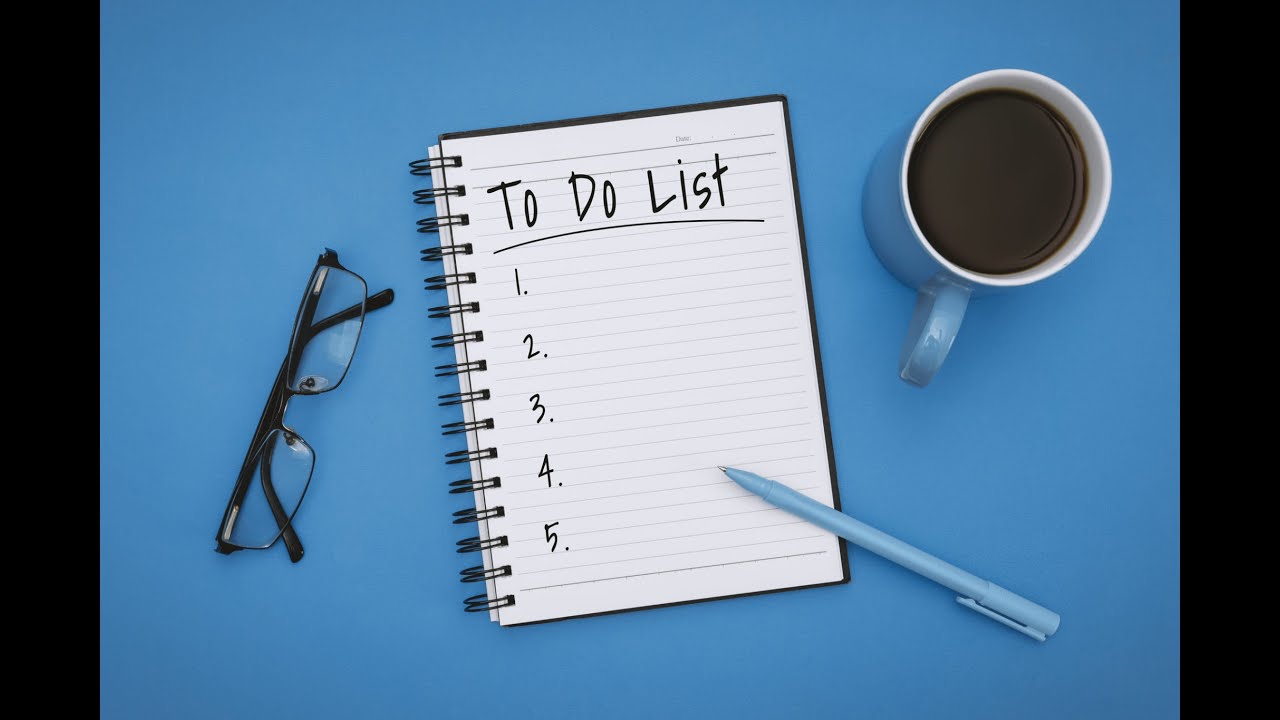 Date:
To Do List
1.
2.
3.
4.
5.